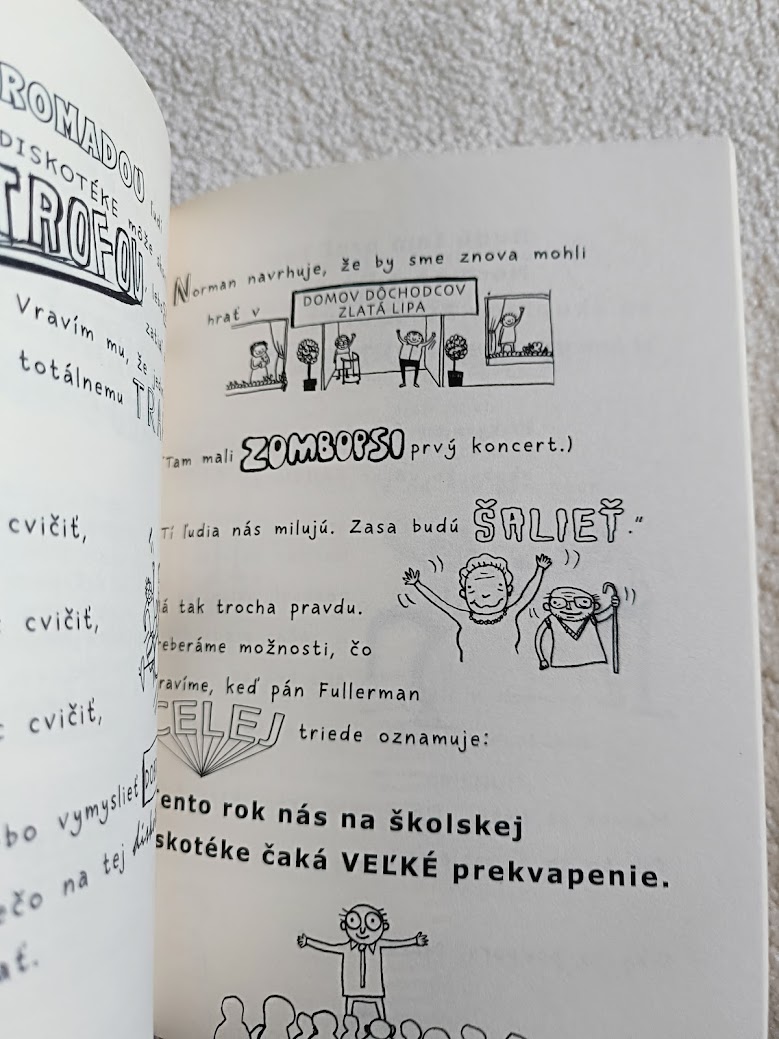 ROMADOU
DISKOTÉKE môže
TROFOU
Vravím mu, že
totálnemu
cvičiť,
cvičiť,
cvičiť,
vymyslieť
na tej
Norman navrhuje, že by sme znova mohli
hrať v
DOMOV DÔCHODCOV
ZLATÁ LIPA
Tam mali ZOMBOPSI prvý koncert.)
Tí ľudia nás milujú. Zasa budú ŠALIEŤ.“
á tak trocha pravdu.
eberáme možnosti, čo
ravíme, keď pán Fullerman
CELEJ triede oznamuje:
ento rok nás na školskej
skotéke čaká VEĽKÉ prekvapenie.